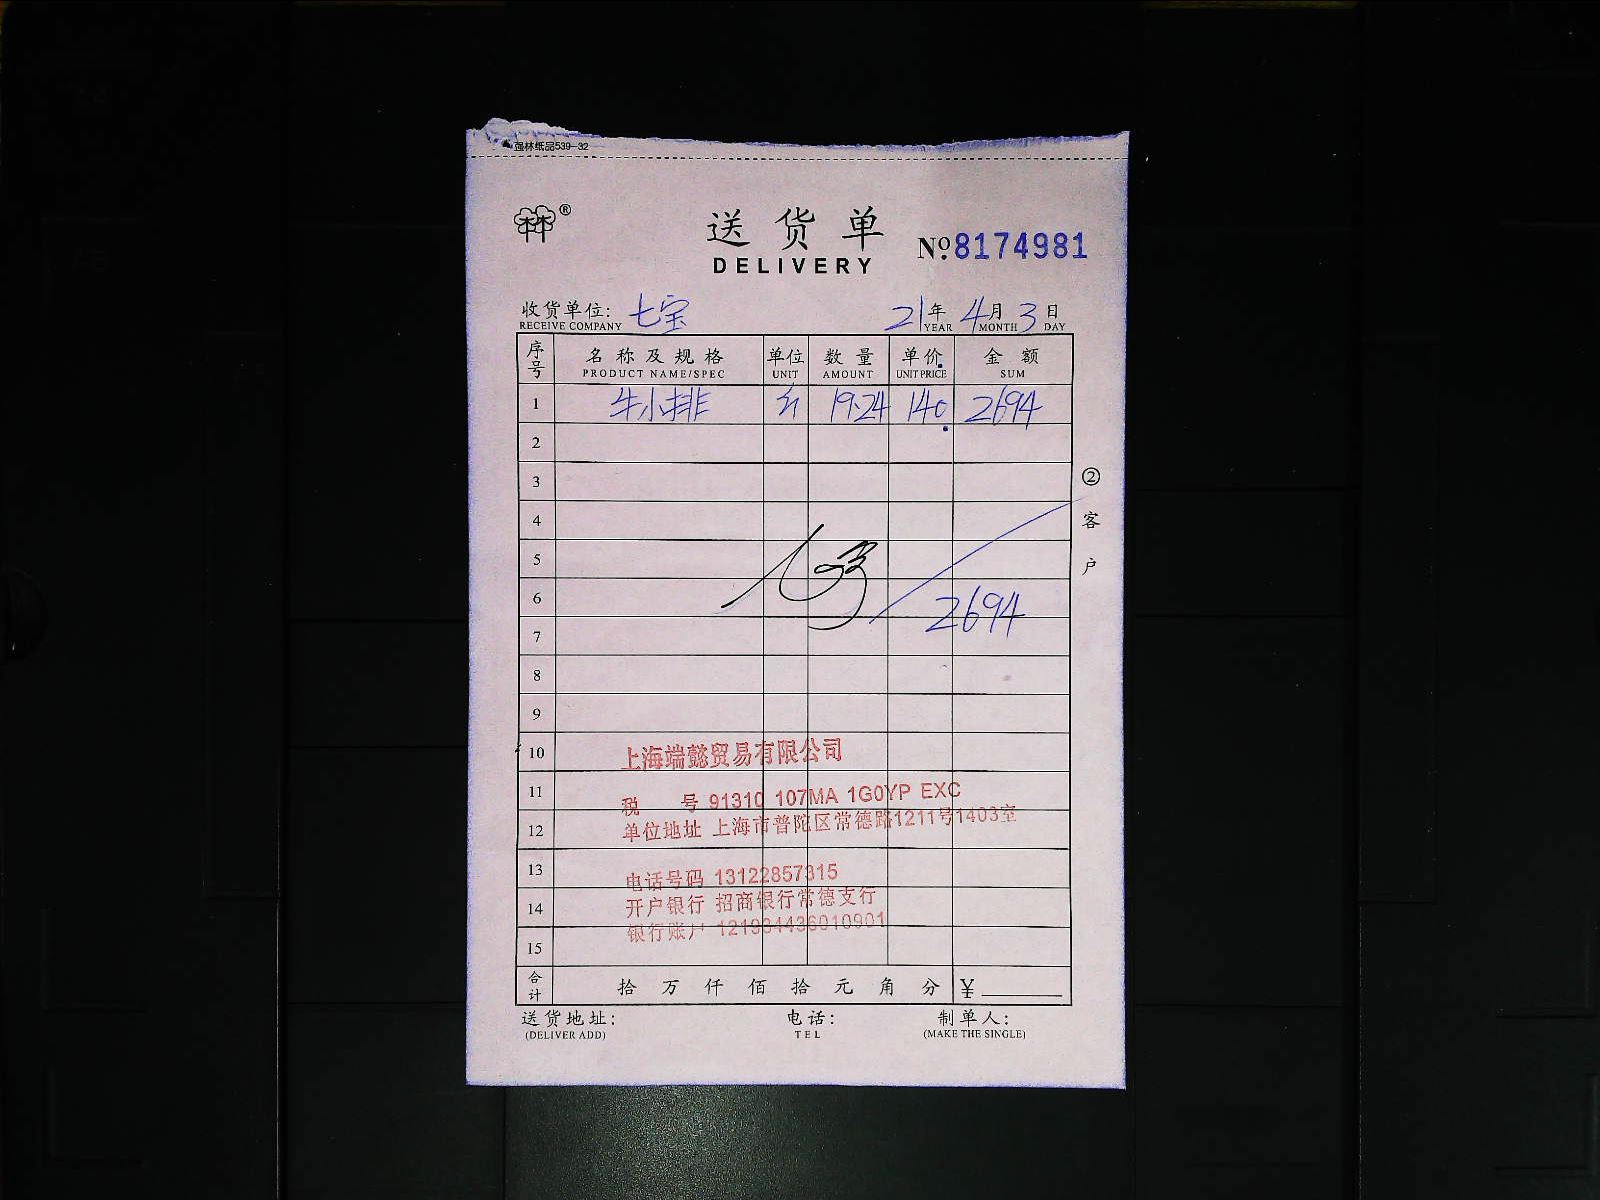 强林纸品539-32
®
送货单
DELIVERY
No.8174981
收货单位: 七宝 21年4月3日
RECEIVE COMPANY YEAR MONTH DAY
序号 名称及规格 单位 数量 单价 金额
PRODUCT NAME/SPEC UNIT AMOUNT UNIT PRICE SUM
1 牛小排 斤 19.24 140. 2694
2
3
4
5
6 2694
7
8
9
10 上海端懿贸易有限公司
11 税号 91310 107MA 1G0YP EXC
12 单位地址 上海市普陀区常德路1211号1403室
13 电话号码 13122857315
14 开户银行 招商银行常德支行
银行账户 121934436010901
15
合计 拾万仟佰拾元角分 ¥
送货地址: 电话: 制单人:
(DELIVER ADD) TEL (MAKE THE SINGLE)
②客户